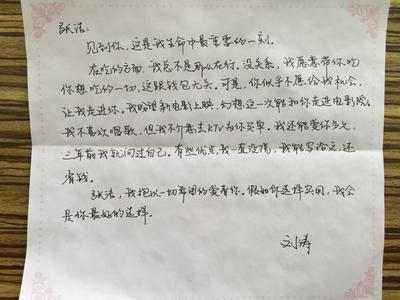 张洁:
见到你,这是我生命中最重要的一刻
在吃的方面,我总不是那么在行。没关系,我愿意带你吃
你想吃的一切,这跟钱包无关。可是,你似乎不愿给我机会,
让我走进你。我盼望新电影上映,幻想这一次能和你走进电影院。
我不喜欢唱歌,但我不介意去KTV为你买单。我还能爱你多久,
三年前我就问过自己。有些优点我一直没说,我能写论文,还
省钱。
张洁,我抱以一切希望的爱着你。假如你选择实用,我会
是你最好的选择。
刘涛